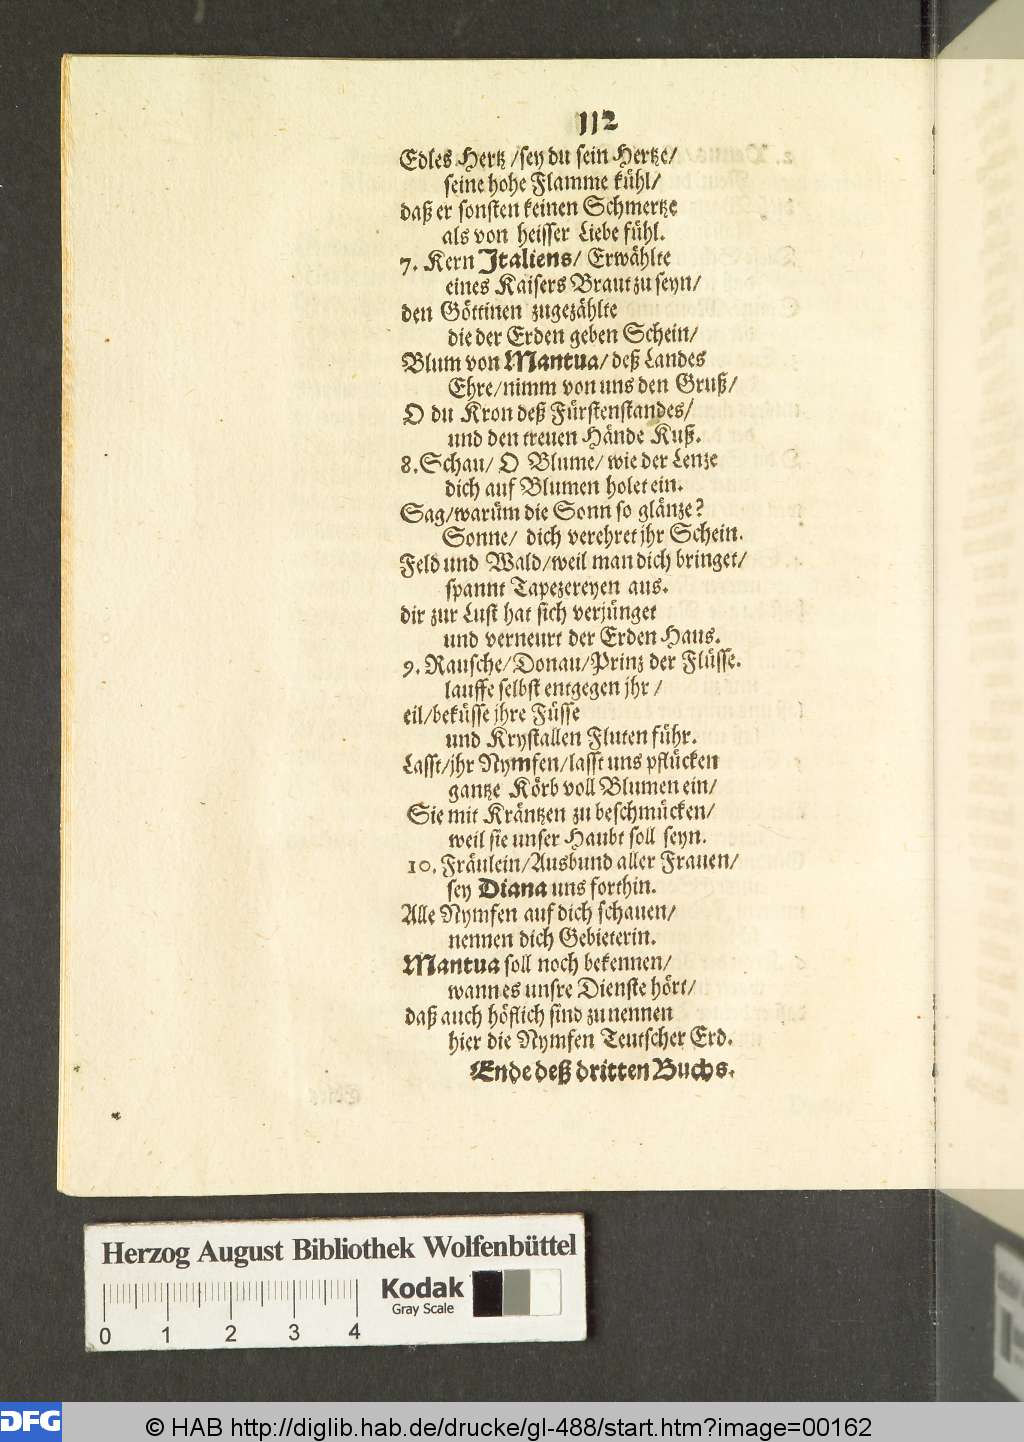 112
Edles Hertz /sey du sein Hertze/
seine hohe Flamme kühl/
daß er sonsten keinen Schmertze
als von heisser Liebe fühl.
7. Kern Italiens/ Erwählte
eines Kaisers Braut zu seyn/
den Göttinen zugezählte
die der Erden geben Schein/
Blum von Mantua/ deß Landes
Ehre/nimm von uns den Gruß/
O du Kron deß Fürstenstandes/
und den treuen Hände Kuß.
8. Schau/ O Blume/ wie der Lenze
dich auf Blumen holet ein.
Sag/warüm die Sonn so glänze?
Sonne/ dich verehret jhr Schein.
Feld und Wald/weil man dich bringet/
spannt Tapezereyen aus.
dir zur Lust hat sich verjünget
und verneurt der Erden Haus.
9. Rausche/Donau/Prinz der Flüsse.
lauffe selbst entgegen jhr /
eil/beküsse jhre Füsse
und Krystallen Fluten führ.
Lasst/jhr Nymfen/lasst uns pflücken
gantze Körb voll Blumen ein/
Sie mit Kräntzen zu beschmücken/
weil sie unser Haubt soll seyn.
10. Fräulein/Ausbund aller Frauen/
sey Diana uns forthin.
Alle Nymfen auf dich schauen/
nennen dich Gebieterin.
Mantua soll noch bekennen/
wann es unsre Dienste hört/
daß auch höflich sind zu nennen
hier die Nymfen Teutscher Erd.
Ende deß dritten Buchs.
Herzog August Bibliothek Wolfenbüttel
Kodak
Gray Scale
0 1 2 3 4
DFG
© HAB http://diglib.hab.de/drucke/gl-488/start.htm?image=00162